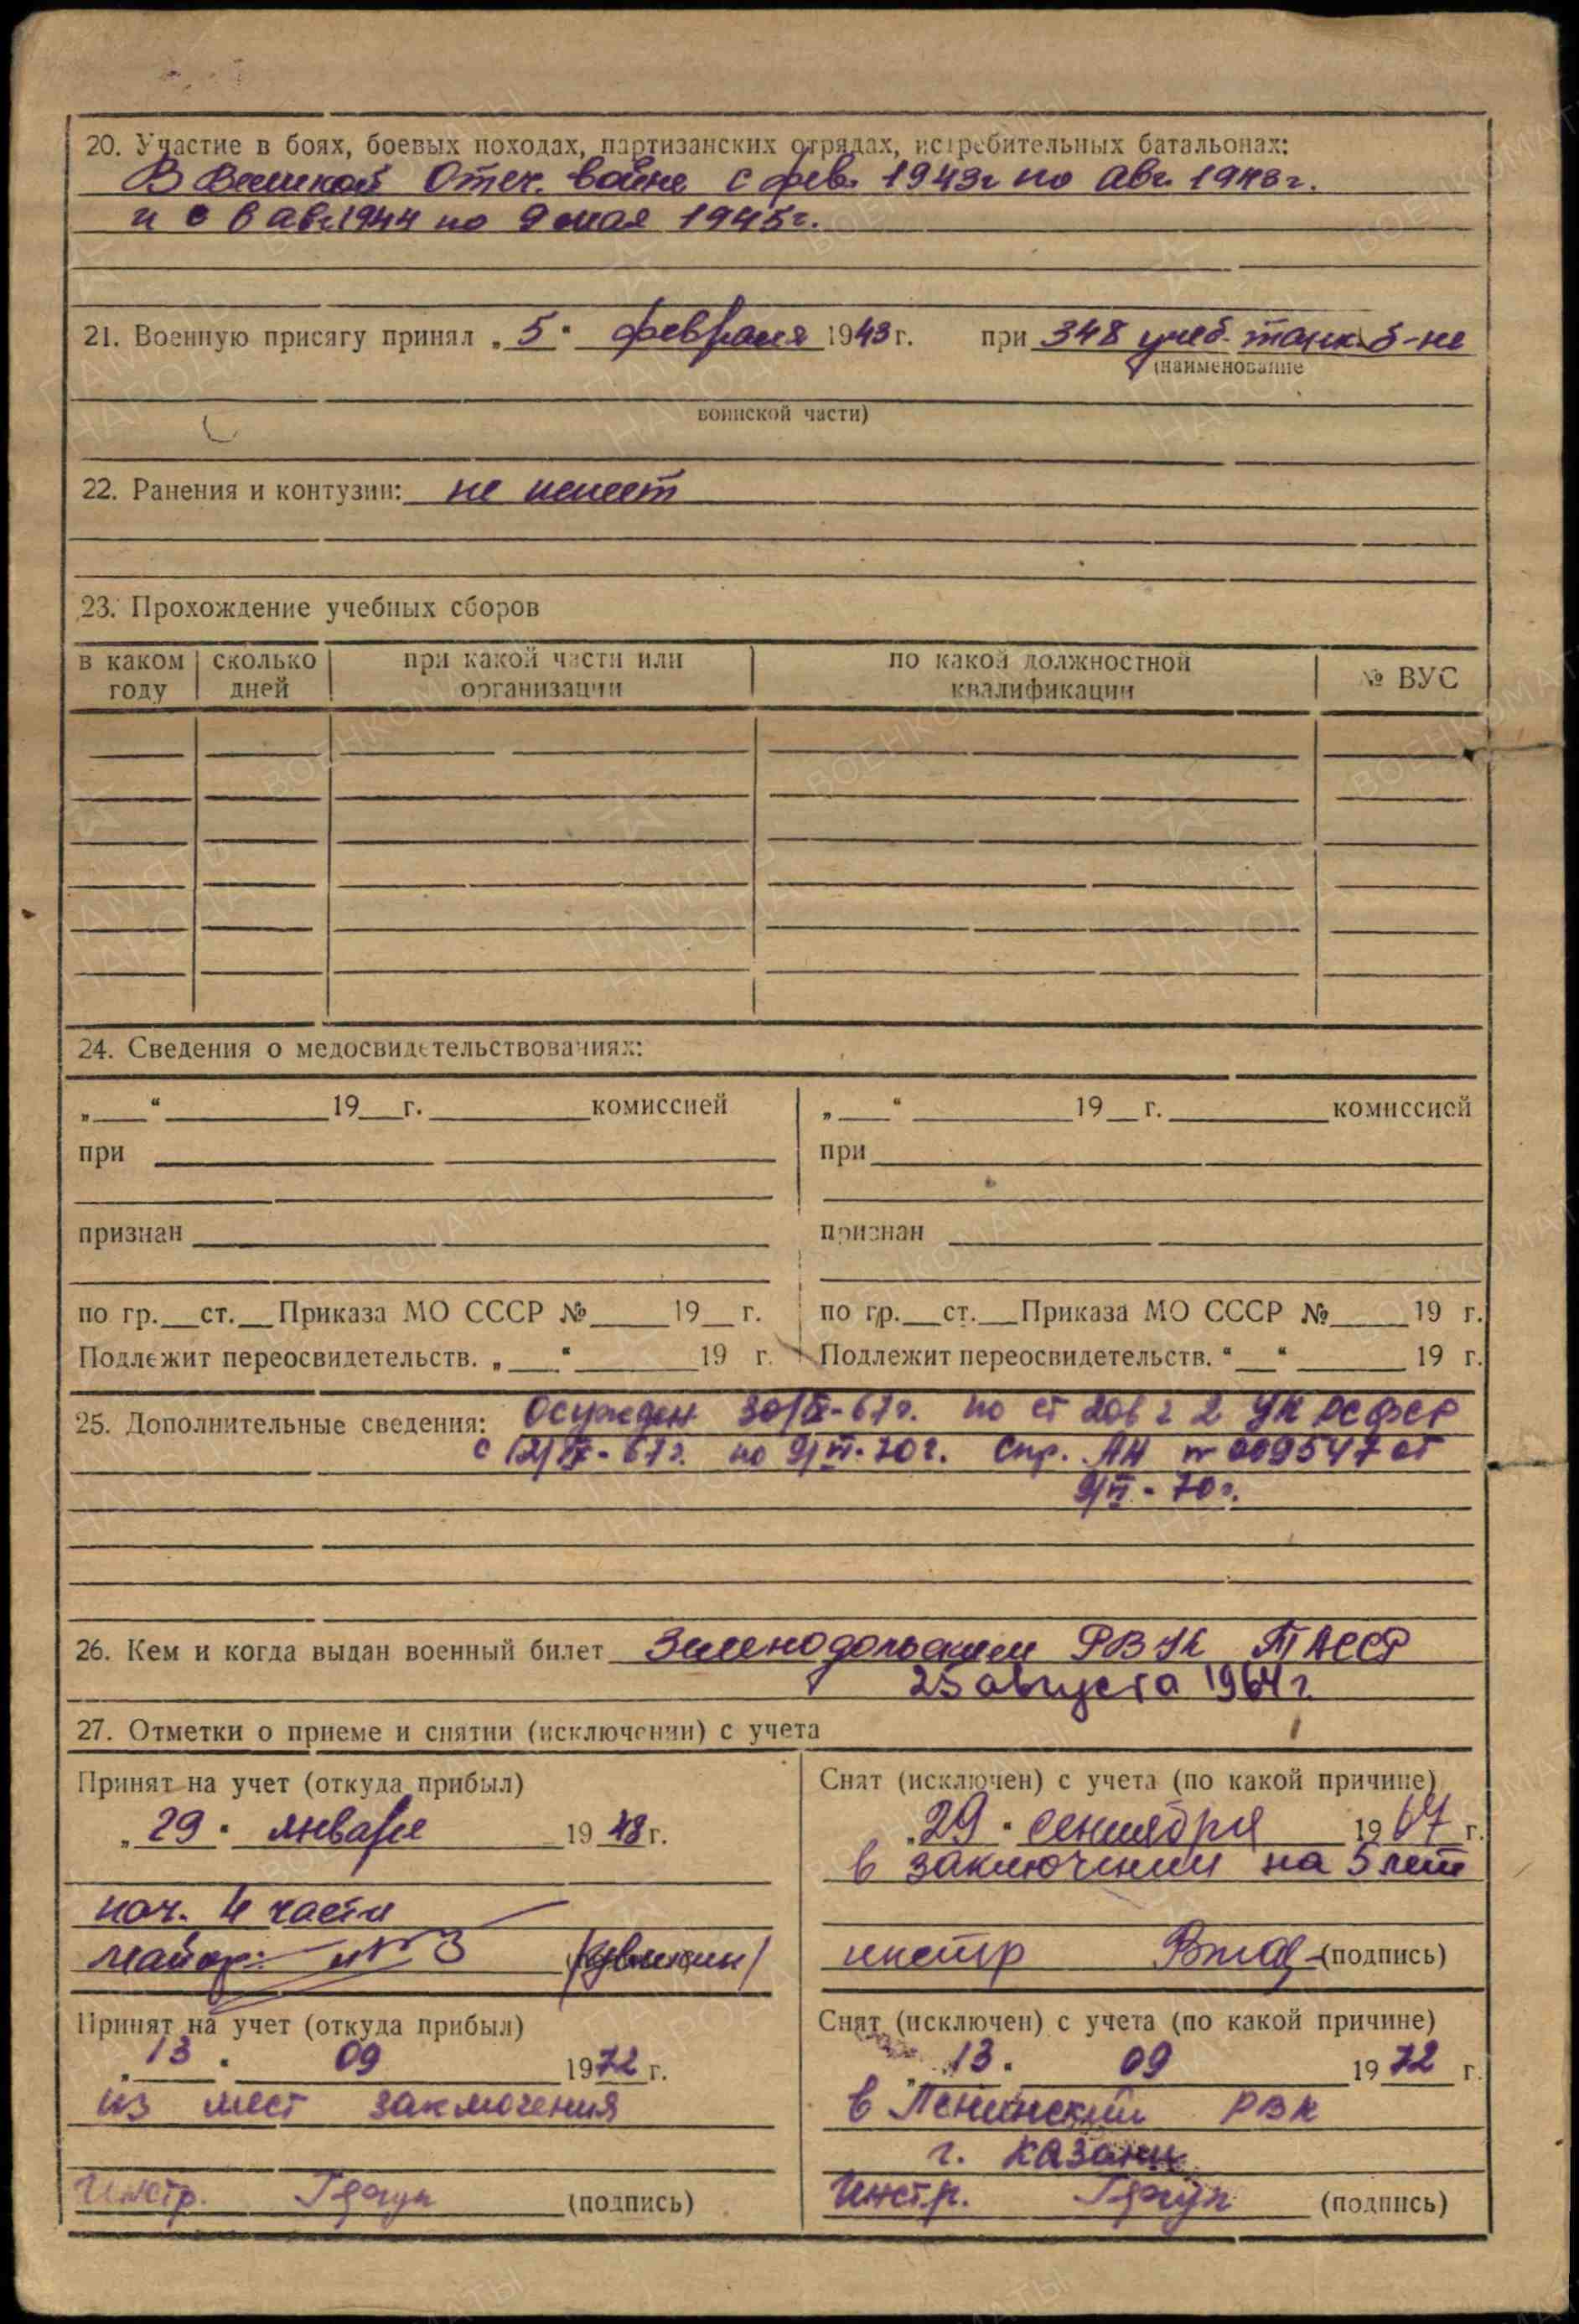 20. Участие в боях, боевых походах, партизанских отрядах, истребительных батальонах:
В Великой Отеч. войне с фев. 1943г по авг. 1943г.
и с в авг.1944 по 9 мая 1945г.
21. Военную присягу принял „5" февраля 1943г. при 348 учеб. танк. б-не
(наименование
воинской части)
22. Ранения и контузии: не имеет
23. Прохождение учебных сборов
в каком году сколько дней при какой части или организации по какой должностной квалификации № ВУС
24. Сведения о медосвидетельствованиях:
„ “ 19 г. комиссией „ “ 19 г. комиссией
при при
признан признан
по гр. ст. Приказа МО СССР № 19 г. по гр. ст. Приказа МО СССР № 19 г.
Подлежит переосвидетельств. „ “ 19 г. Подлежит переосвидетельств. “ “ 19 г.
25. Дополнительные сведения: Осужден 30/IX-67г. по ст 206 ч 2 УК РСФСР
с 12/IX-67г. по 9/VI-70г. Спр. АН № 009547 от
9/VI-70г.
26. Кем и когда выдан военный билет Зеленодольским РВК ТАССР
25 августа 1964г.
27. Отметки о приеме и снятии (исключении) с учета
Принят на учет (откуда прибыл) Снят (исключен) с учета (по какой причине)
„29" января 1948г. „29" сентября 1967 г.
в заключении на 5 лет
нач. 4 части
майор: инстр (подпись)
Принят на учет (откуда прибыл) Снят (исключен) с учета (по какой причине)
„13" 09 1972 г. „13" 09 1972 г.
из мест заключения в Ленинский РВК
г. Казани
Инстр. (подпись) Инстр. (подпись)